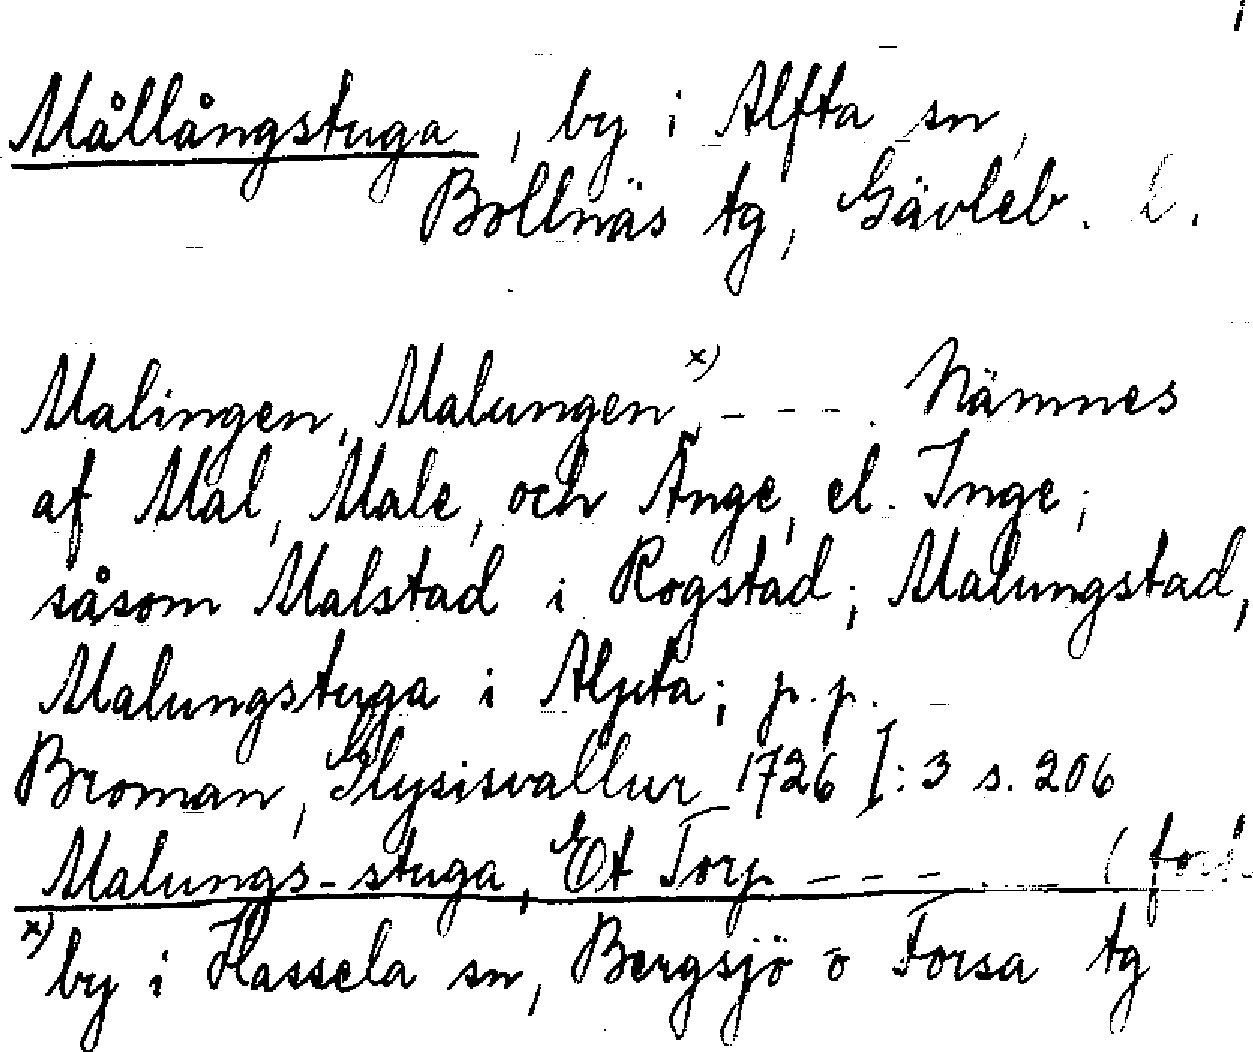 1
Mållångstuga, by i Alfta sn,
Bollnäs tg, Gävleb. l.
Malingen, Malungen x) - - - . Nämnes
af Mal, Male, och Änge, el. Inge;
såsom Malstad i Rogstad; Malungstad,
Malungstuga i Alpta; p.p.
Broman, Glysisvallur 1726 I:3 s. 206
Malungs-stuga, Et Torp - - - . (forts
x) by i Hassela sn, Bergsjö o Forsa tg